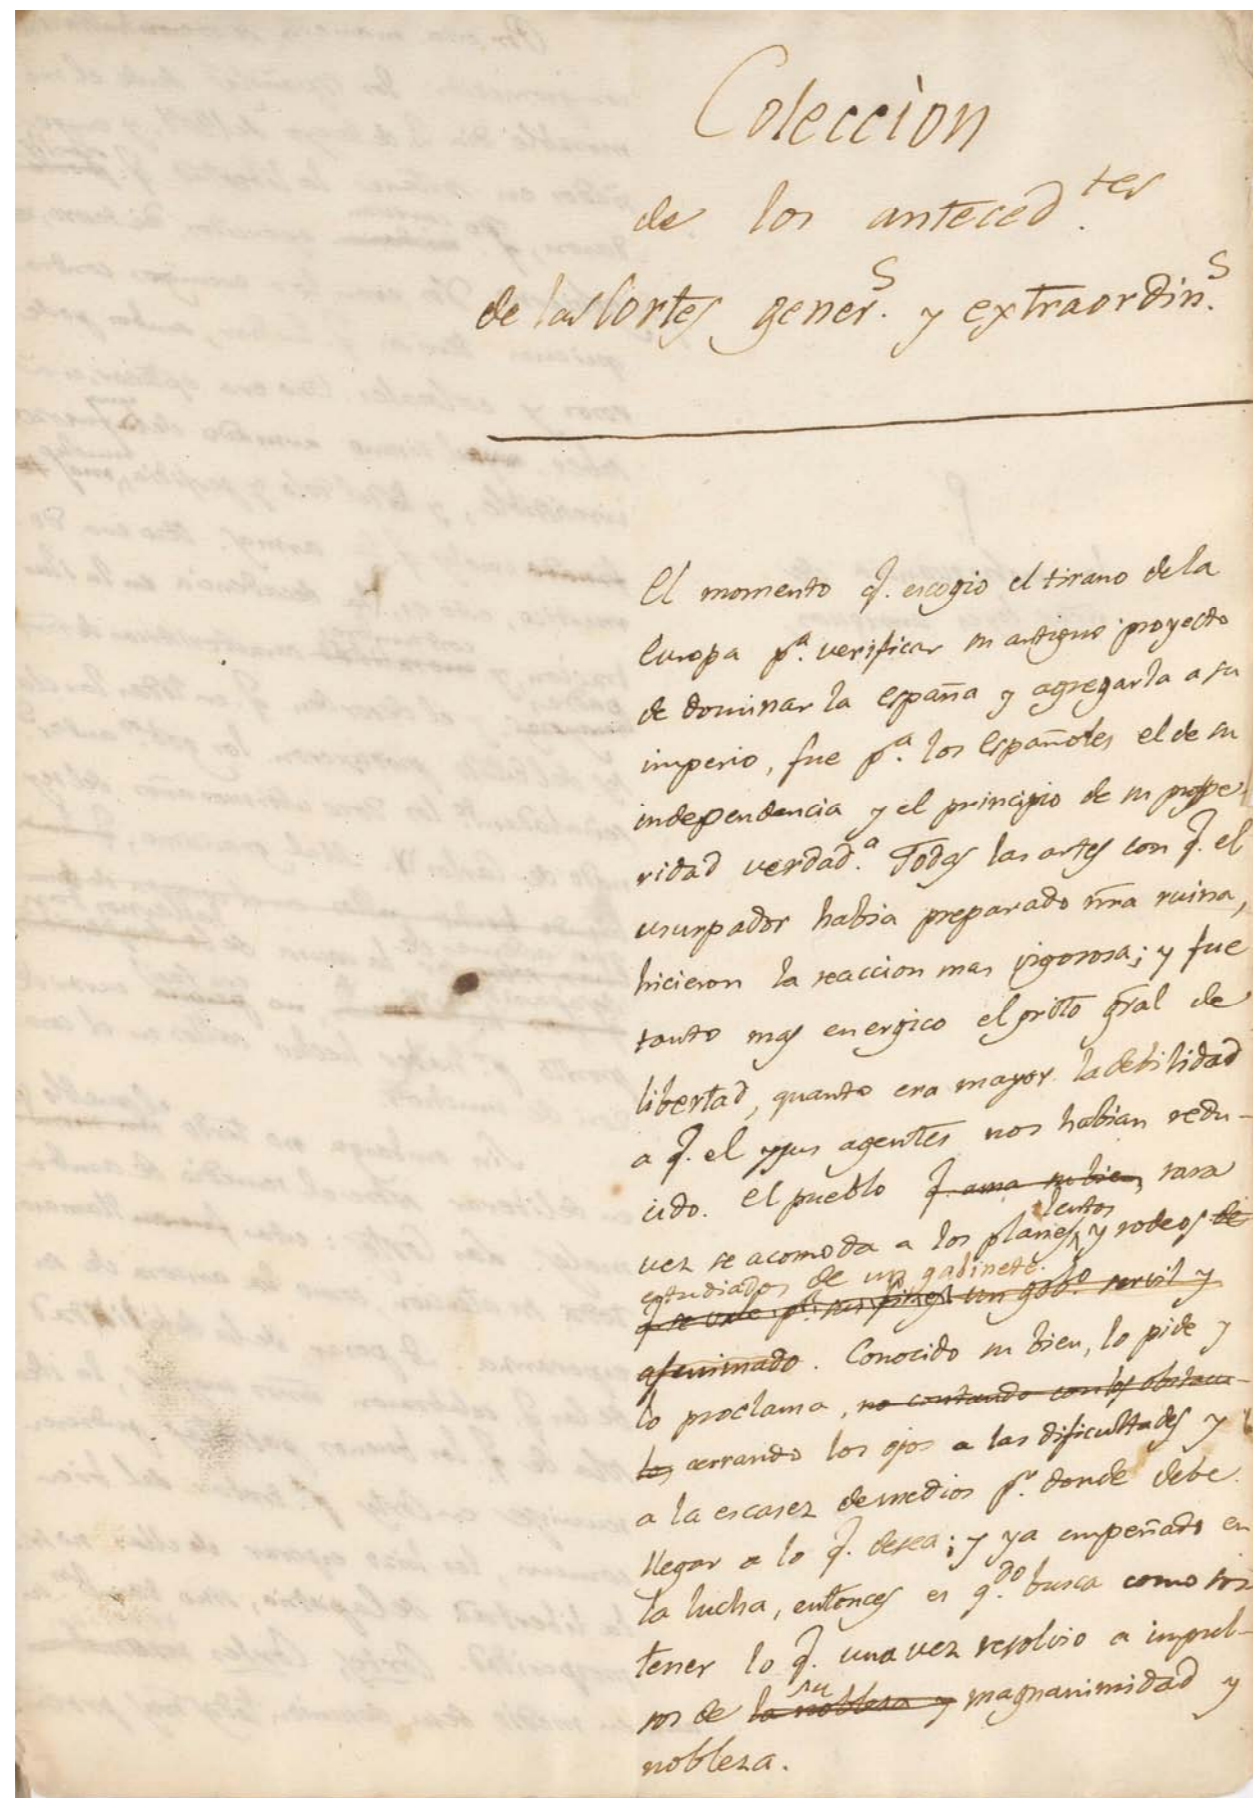 Coleccion
de los anteced.tes
de las Cortes gener.s y extraordin.s
El momento q. escogio el tirano de la
Europa p.a verificar su antiguo proyecto
de dominar la españa y agregarla a su
imperio, fue p.a los Españoles el de su
independencia y el principio de su prospe-
ridad verdad.a Todas las artes con q. el
usurpador habia preparado nra ruina,
hicieron la reaccion mas vigorosa; y fue
tanto mas energico el grito gral de
libertad, quanto era mayor la debilidad
a q. el y sus agentes nos habian redu-
cido. el pueblo q. ama su bien, rara
lentos
vez se acomoda a los planes, y rodeos de
estudiados de un gabinete.
q. se vale p.a sus fines un gob.o servil y
afeminado. Conocido su bien, lo pide y
lo proclama, no contando con los obstacu-
los cerrando los ojos a las dificultades y
a la escasez de medios p.r donde debe
llegar a lo q. desea; y ya empeñado en
la lucha, entonces es q.do busca como sos
tener lo q. una vez resolvio a impul-
su
sos de la nobleza y magnanimidad y
nobleza.